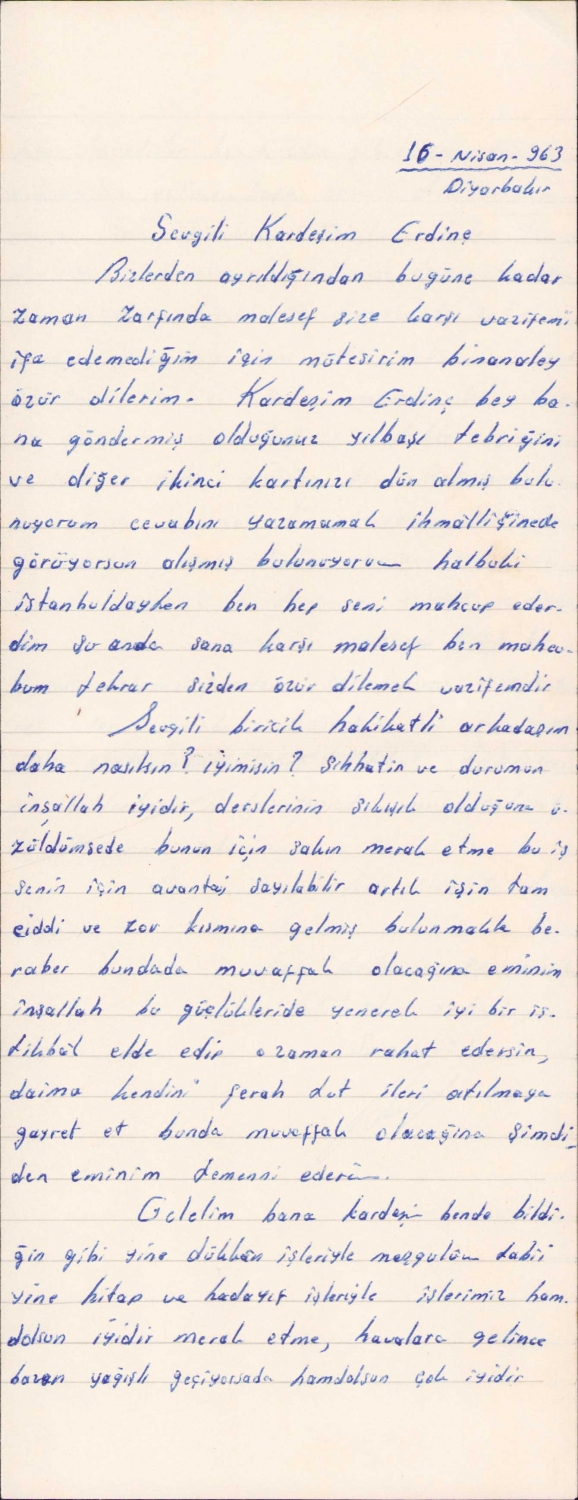 16 - Nisan - 963
Diyarbakır
Sevgili Kardeşim Erdinç
Bizlerden ayrıldığından bugüne kadar
zaman zarfında malesef size karşı vazifemi
ifa edemediğim için mütesirim binanaley
özür dilerim. Kardeşim Erdinç bey ba-
na göndermiş olduğunuz yılbaşı tebriğini
ve diğer ikinci kartınızı dün almış bulu-
nuyorum cevabını yazamamak ihmalliğinede
görüyorsun alışmış bulunuyorum halbuki
istanbuldayken ben hep seni mahcup eder-
dim şu anda sana karşı malesef ben mahcu-
bum tekrar sizden özür dilemek vazifemdir
Sevgili biricik hakikatli arkadaşım
daha nasılsın? iyimisin? Sıhhatin ve durumun
inşallah iyidir, derslerinin sıkışık olduğuna ü-
züldümsede bunun için sakın merak etme bu iş
senin için avantaj sayılabilir artık işin tam
ciddi ve zor kısmına gelmiş bulunmakla be-
raber bundada muvaffak olacağına eminim
inşallah bu güçlükleride yenerek iyi bir is-
tikbâl elde edip o zaman rahat edersin,
daima kendini ferah tut ileri atılmaya
gayret et bunda muvaffak olacağına şimdi-
den eminim temenni ederim.
Gelelim bana kardeşim bende bildi-
ğin gibi yine dükkân işleriyle meşgulüm tabii
yine kitap ve kadayıf işleriyle işlerimiz ham-
dolsun iyidir merak etme, havalara gelince
bazen yağışlı geçiyorsada hamdolsun çok iyidir